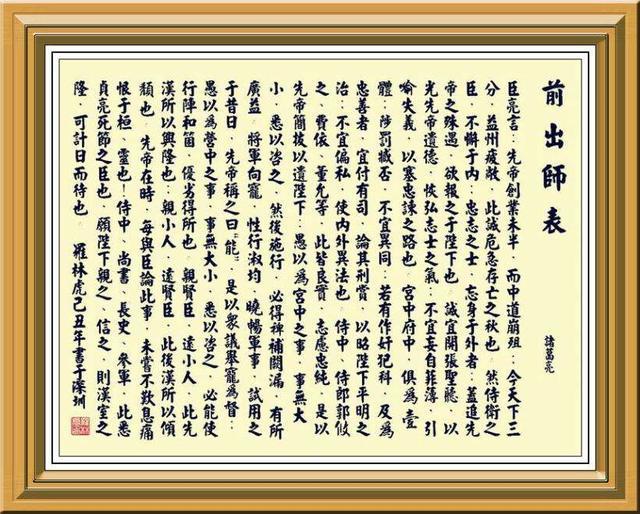 前出師表
諸葛亮
臣亮言：先帝創業未半，而中道崩殂；今天下三
分，益州疲敝，此誠危急存亡之秋也。然侍衛之
臣，不懈于内；忠志之士，忘身于外者：蓋追先
帝之殊遇，欲報之于陛下也。誠宜開張聖聽，以
光先帝遺德，恢弘志士之氣；不宜妄自菲薄，引
喻失義，以塞忠諫之路也。宮中府中，俱為壹
體；陟罰臧否，不宜異同：若有作奸犯科，及為
忠善者，宜付有司，論其刑賞，以昭陛下平明之
治；不宜偏私，使内外異法也。侍中、侍郎郭攸
之、費依、董允等，此皆良實，志慮忠純，是以
先帝簡拔以遺陛下：愚以為宮中之事，事無大
小，悉以咨之，然後施行，必得裨補闕漏，有所
廣益。將軍向寵，性行淑均，曉暢軍事，試用之
于昔日，先帝稱之曰“能”，是以衆議舉寵為督：
愚以為營中之事，事無大小，悉以咨之，必能使
行陣和笛，優劣得所也。親賢臣，遠小人，此先
漢所以興隆也；親小人，遠賢臣，此後漢所以傾
頹也。先帝在時，每與臣論此事，未嘗不歎息痛
恨于桓、靈也！侍中、尚書、長史、參軍，此悉
貞亮死節之臣也，願陛下親之、信之，則漢室之
隆，可計日而待也。 羅林虎己丑年書于深圳